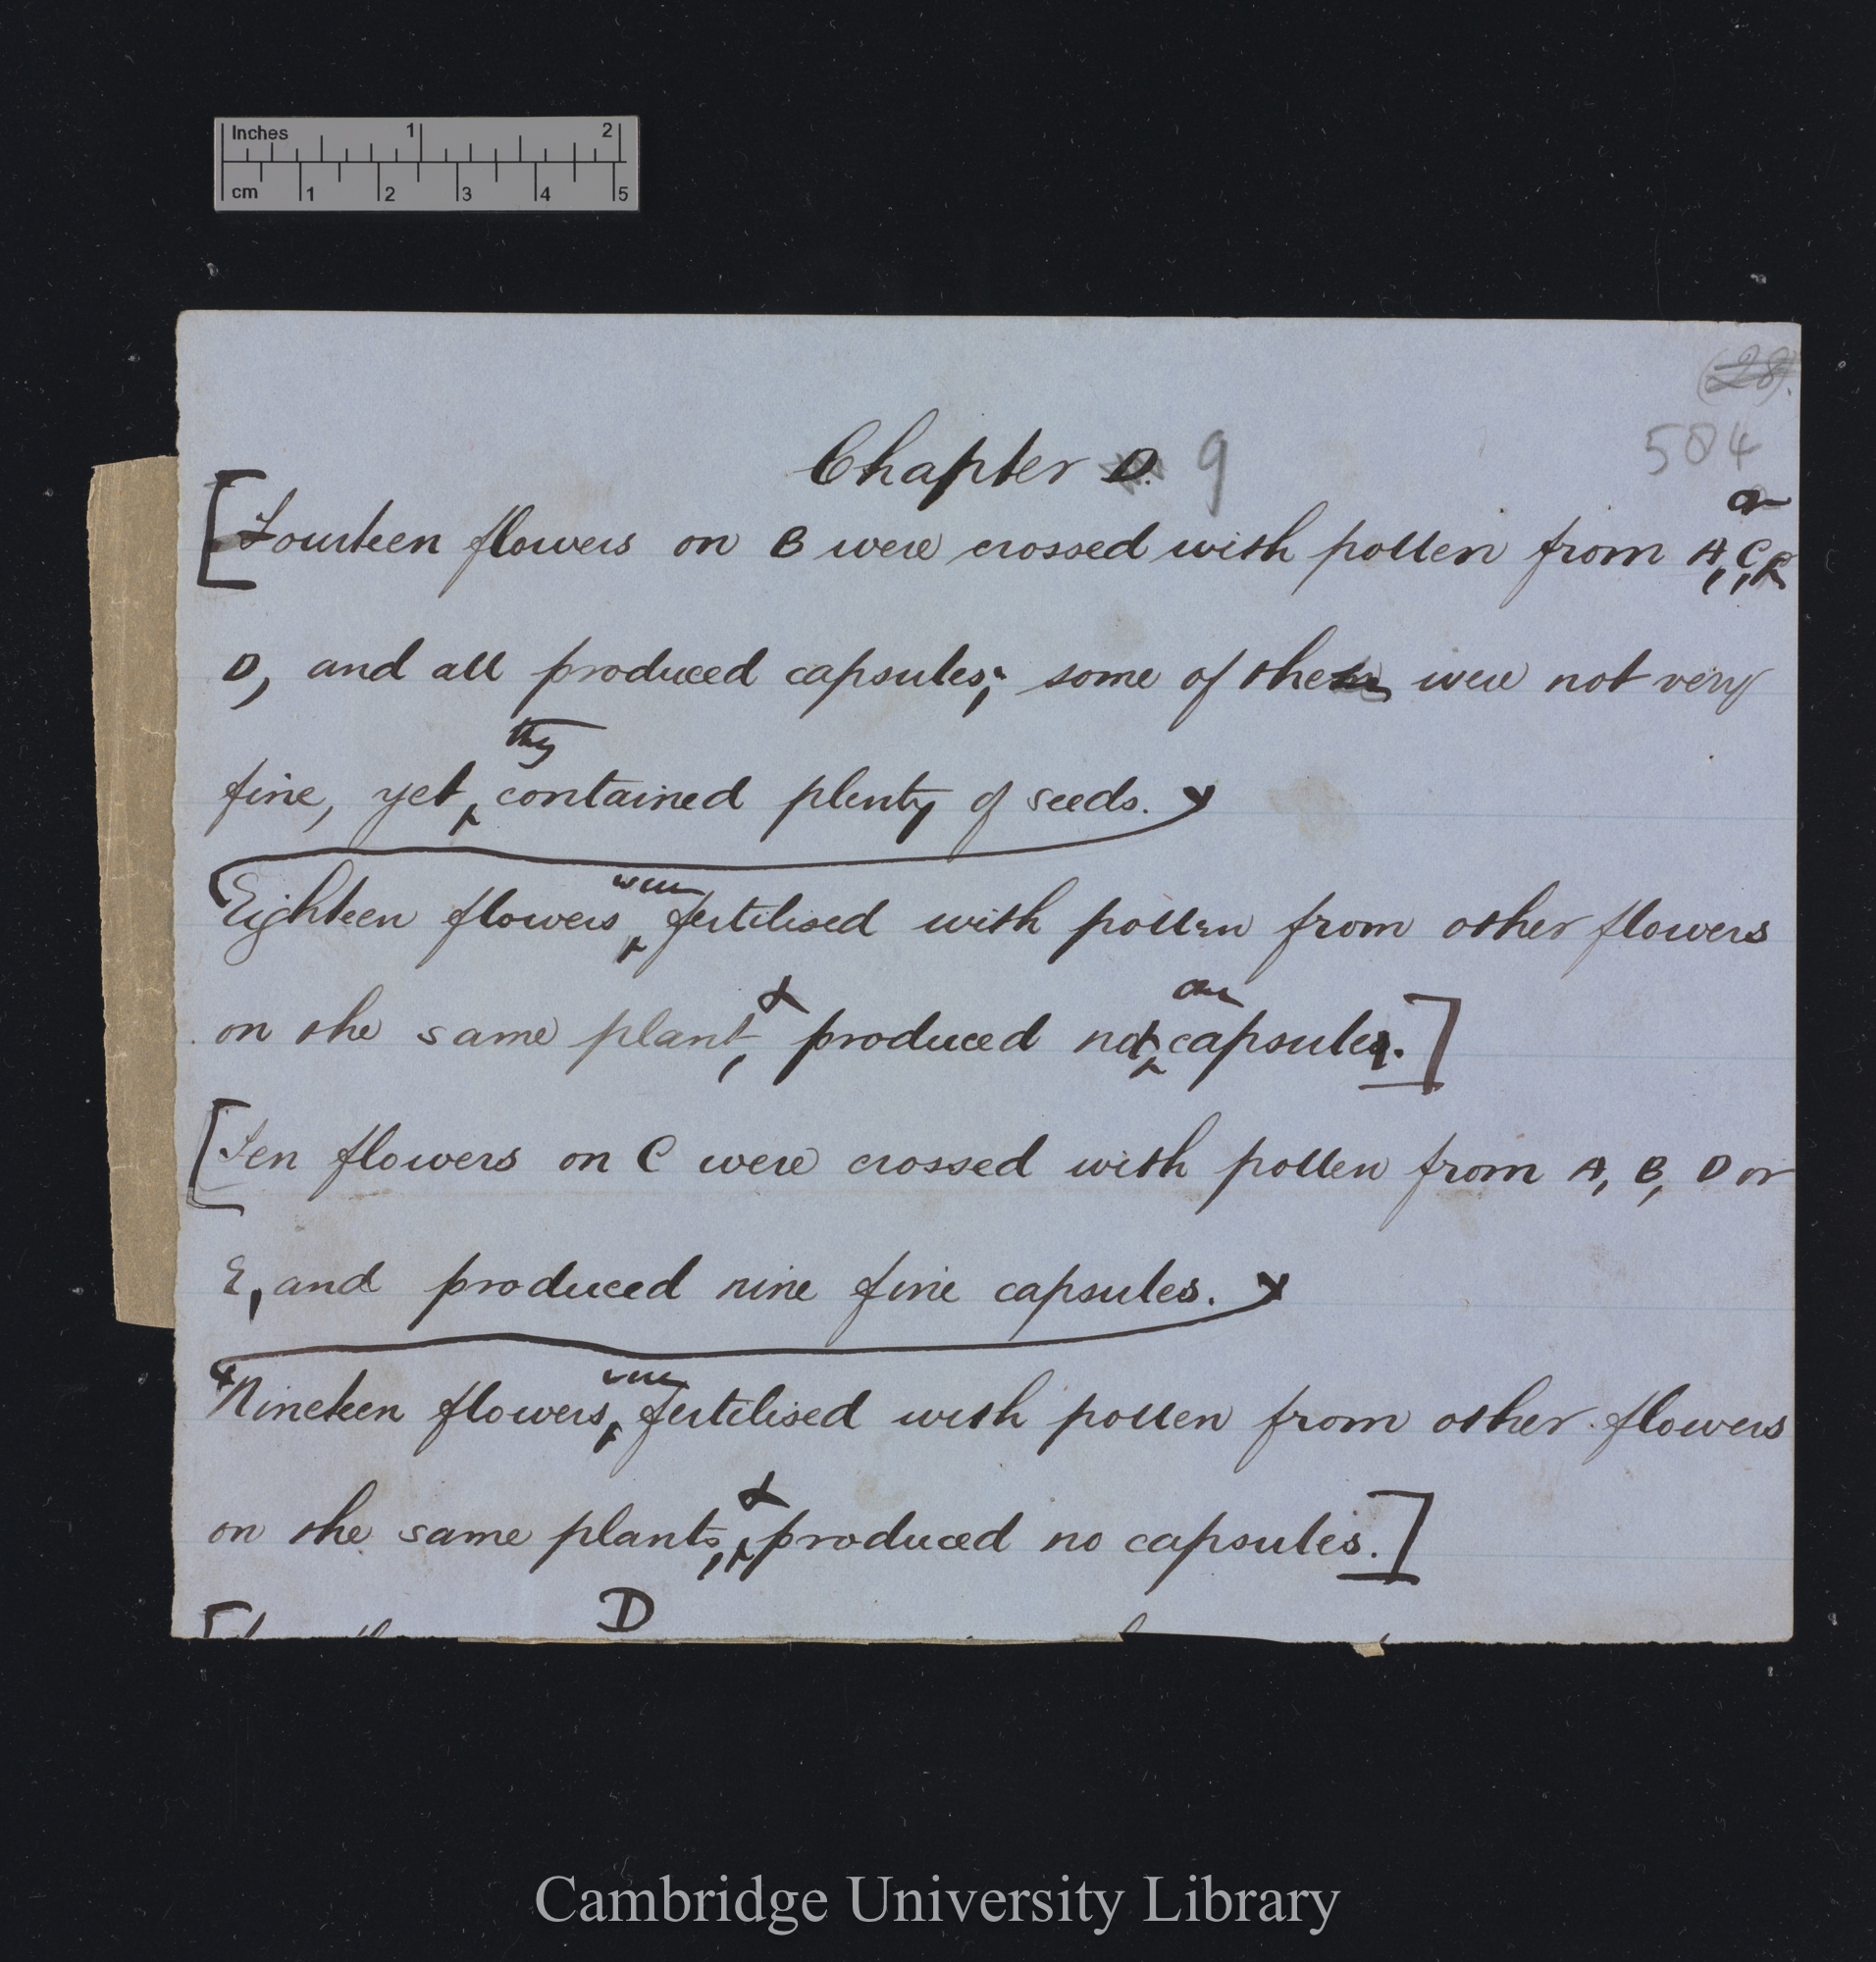 Inches 1 2
cm 1 2 3 4 5
(28).
584
Chapter D. 9
[Fourteen flowers on B were crossed with pollen from A, C, or
D, and all produced capsules; some of these were not very
fine, yet they contained plenty of seeds.
Eighteen flowers were fertilised with pollen from other flowers
on the same plant, & produced not one capsule.]
[Ten flowers on C were crossed with pollen from A, B, D or
E, and produced nine fine capsules.
Nineteen flowers were fertilised with pollen from other flowers
on the same plants, & produced no capsules.]
D
Cambridge University Library